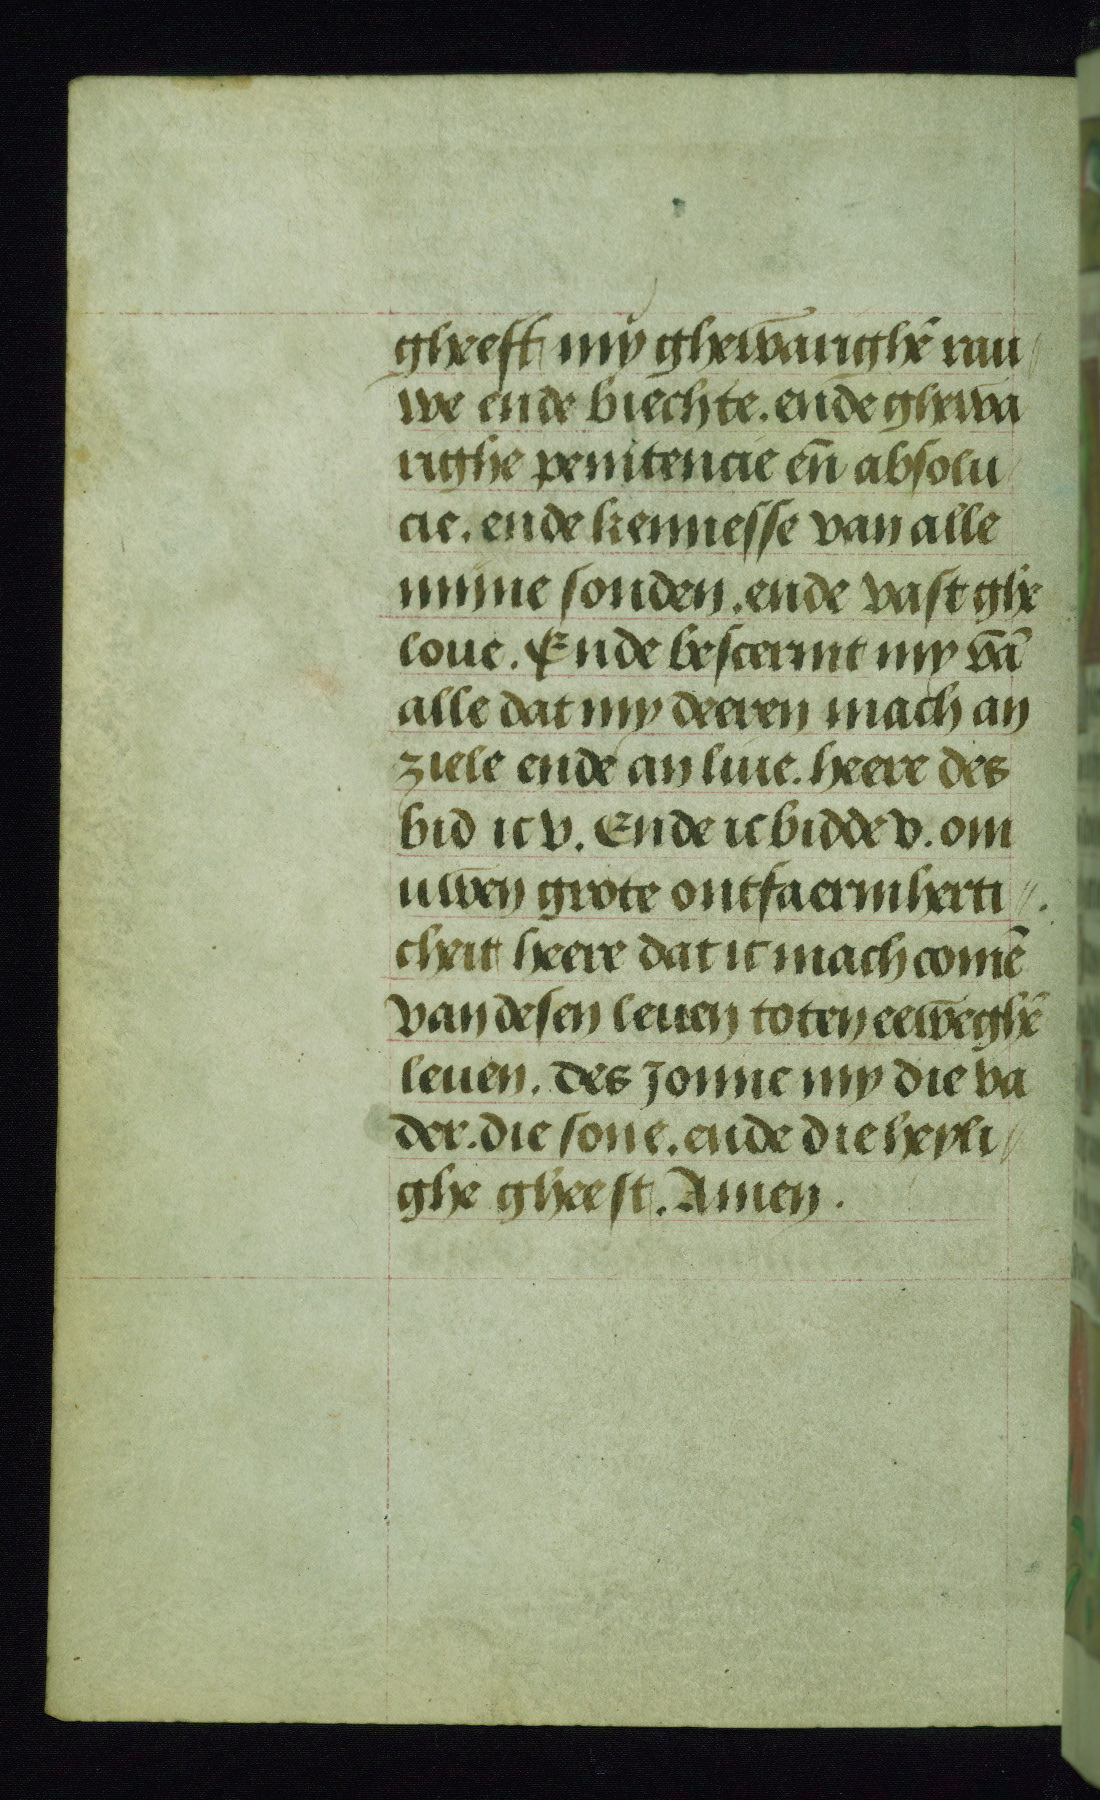 gheeft my ghewarighē rau
we ende biechte. ende ghewa
righe penitencie eñ absolu
cie. ende kennesse van alle
mijne sonden. ende vast ghe
loue. Ende bescermt my vā
alle dat my deeren mach an
ziele ende an liue. heere des
bid ic v. Ende ic bidde v. om
uwen grote ontfaermherti
cheit heere dat ic mach comē
van desen leuen toten eeweghē
leuen. des jonne my die va
der. die sone. ende die heyli
ghe gheest. Amen.